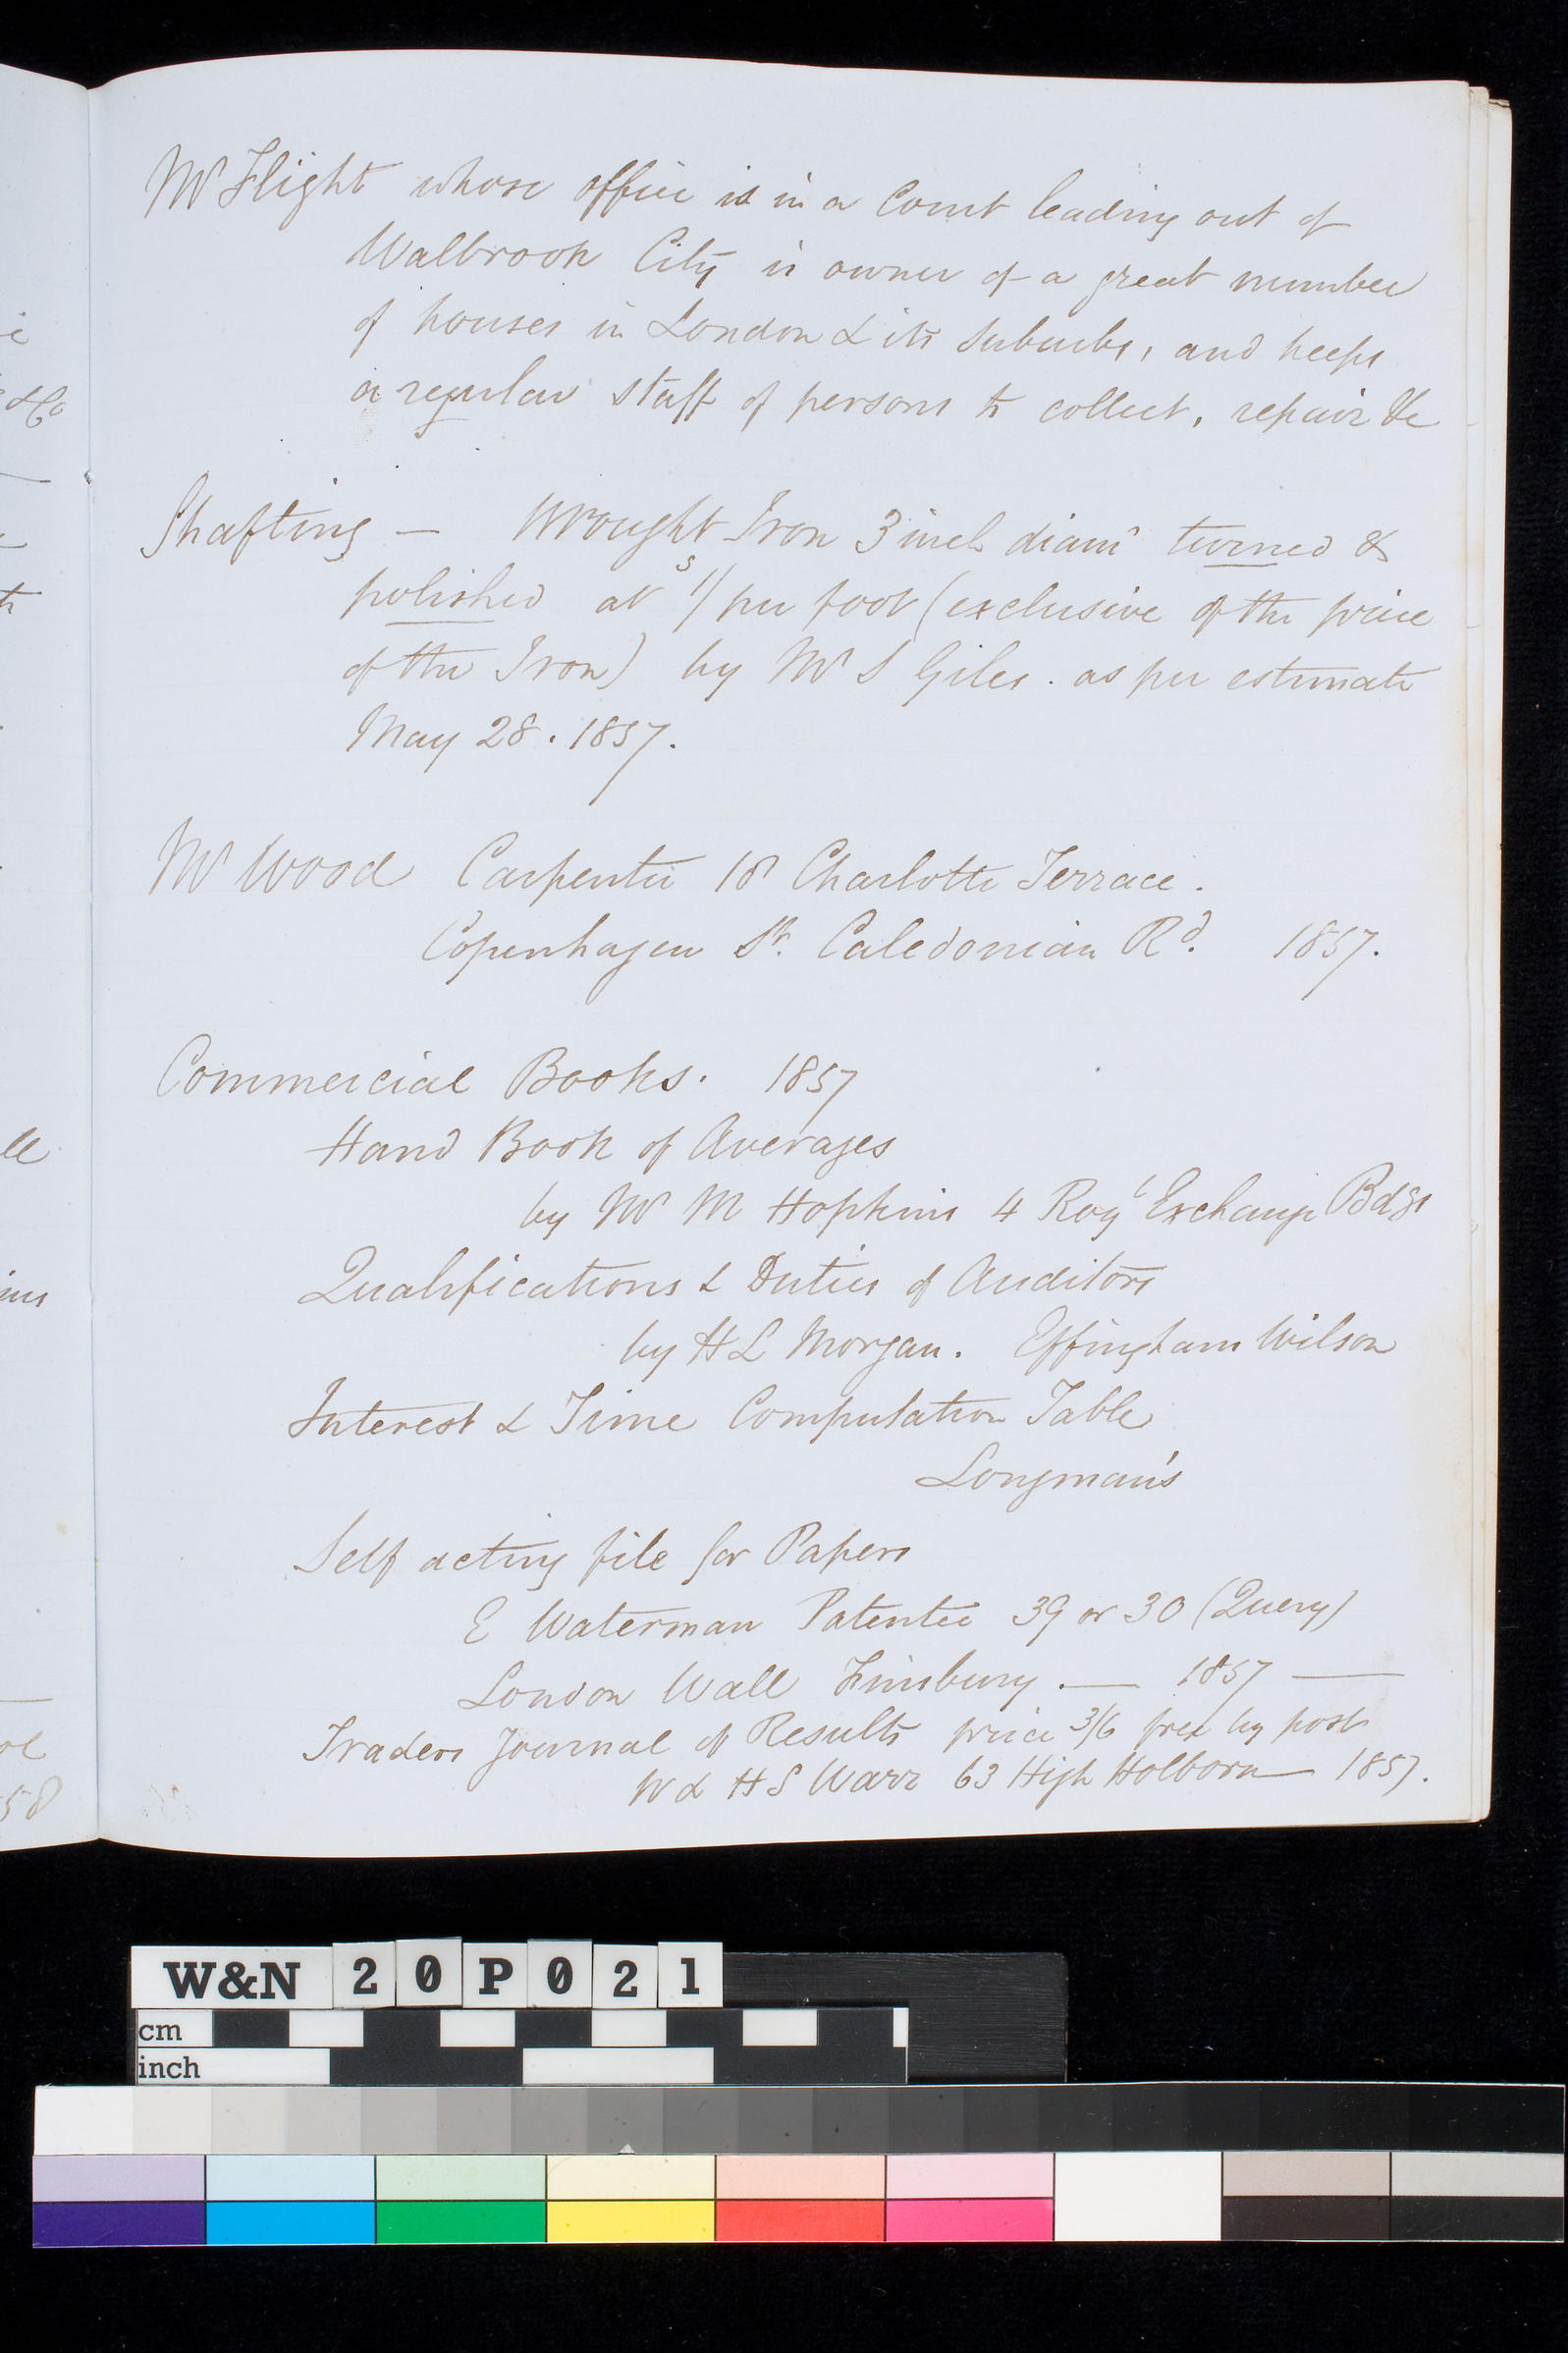 Mr Flight whose office is in a Court leading out of
Walbrook City is owner of a great number
of houses in London & its Suburbs, and keeps
a regular staff of persons to collect, repair &c
Shafting — Wrought Iron 3 inch diamr turned &
polished at 1s/ per foot (exclusive of the price
of the Iron) by Mr S Giles. as per estimate
May 28. 1857.
Mr Wood Carpenter 18 Charlotte Terrace.
Copenhagen St. Caledonian Rd. 1857.
Commercial Books. 1857
Hand Book of Averages
by Mr M Hopkins 4 Royl Exchange Bdgs
Qualifications & Duties of Auditors
by H L Morgan. Effingham Wilson
Interest & Time Computation Table
Longman's
Self acting file for Papers
E Waterman Patentee 39 or 30 (Query)
London Wall Finsbury. — 1857 —
Traders Journal of Results price 3/6 free by post
W & H S Warr 63 High Holborn — 1857.
ins
58
W&N 20P021
cm
inch